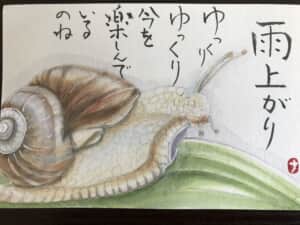 雨上がり
ゆっくり
ゆっくり
今を
楽しんで
いる
のね
ナ